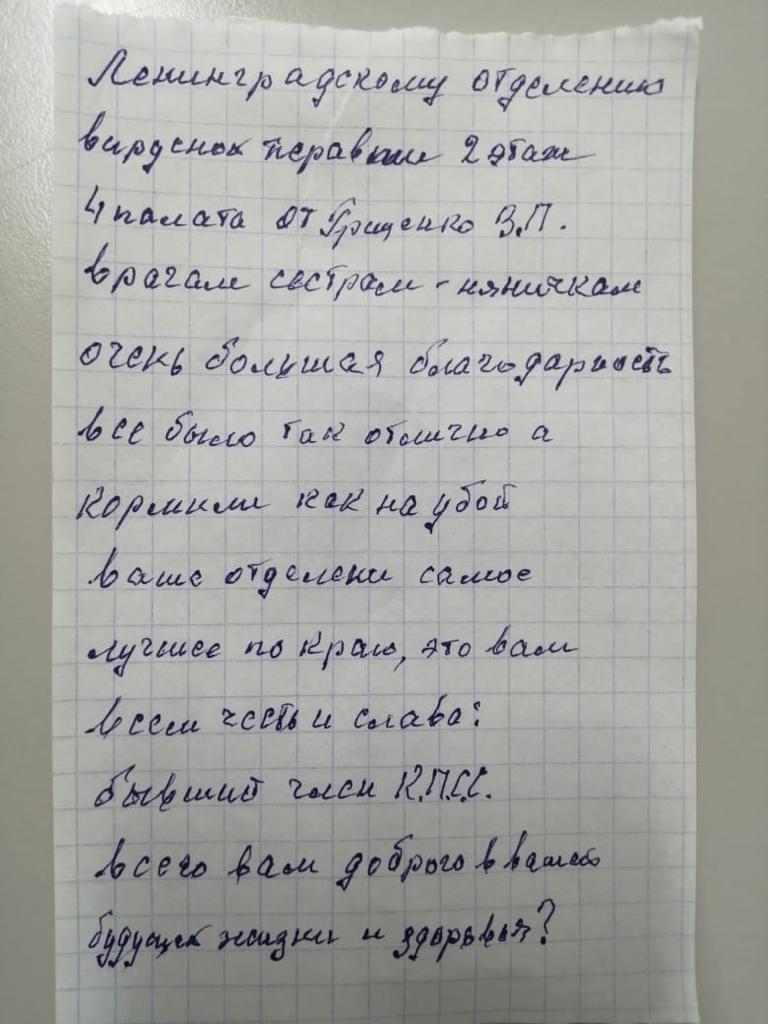 Ленинградскому отделению
вируснок 2 этаж
4 палата от Грищенко В.П.
врачам сестрам - няничкам
очень большая благодарность
все было так отлично а
кормили как на убой
ваше отделени самое
лучшее по краю, это вам
всем честь и слава:
бывший член К.П.С.С.
всего вам доброго в вашей
будущек жизни и здоровья?